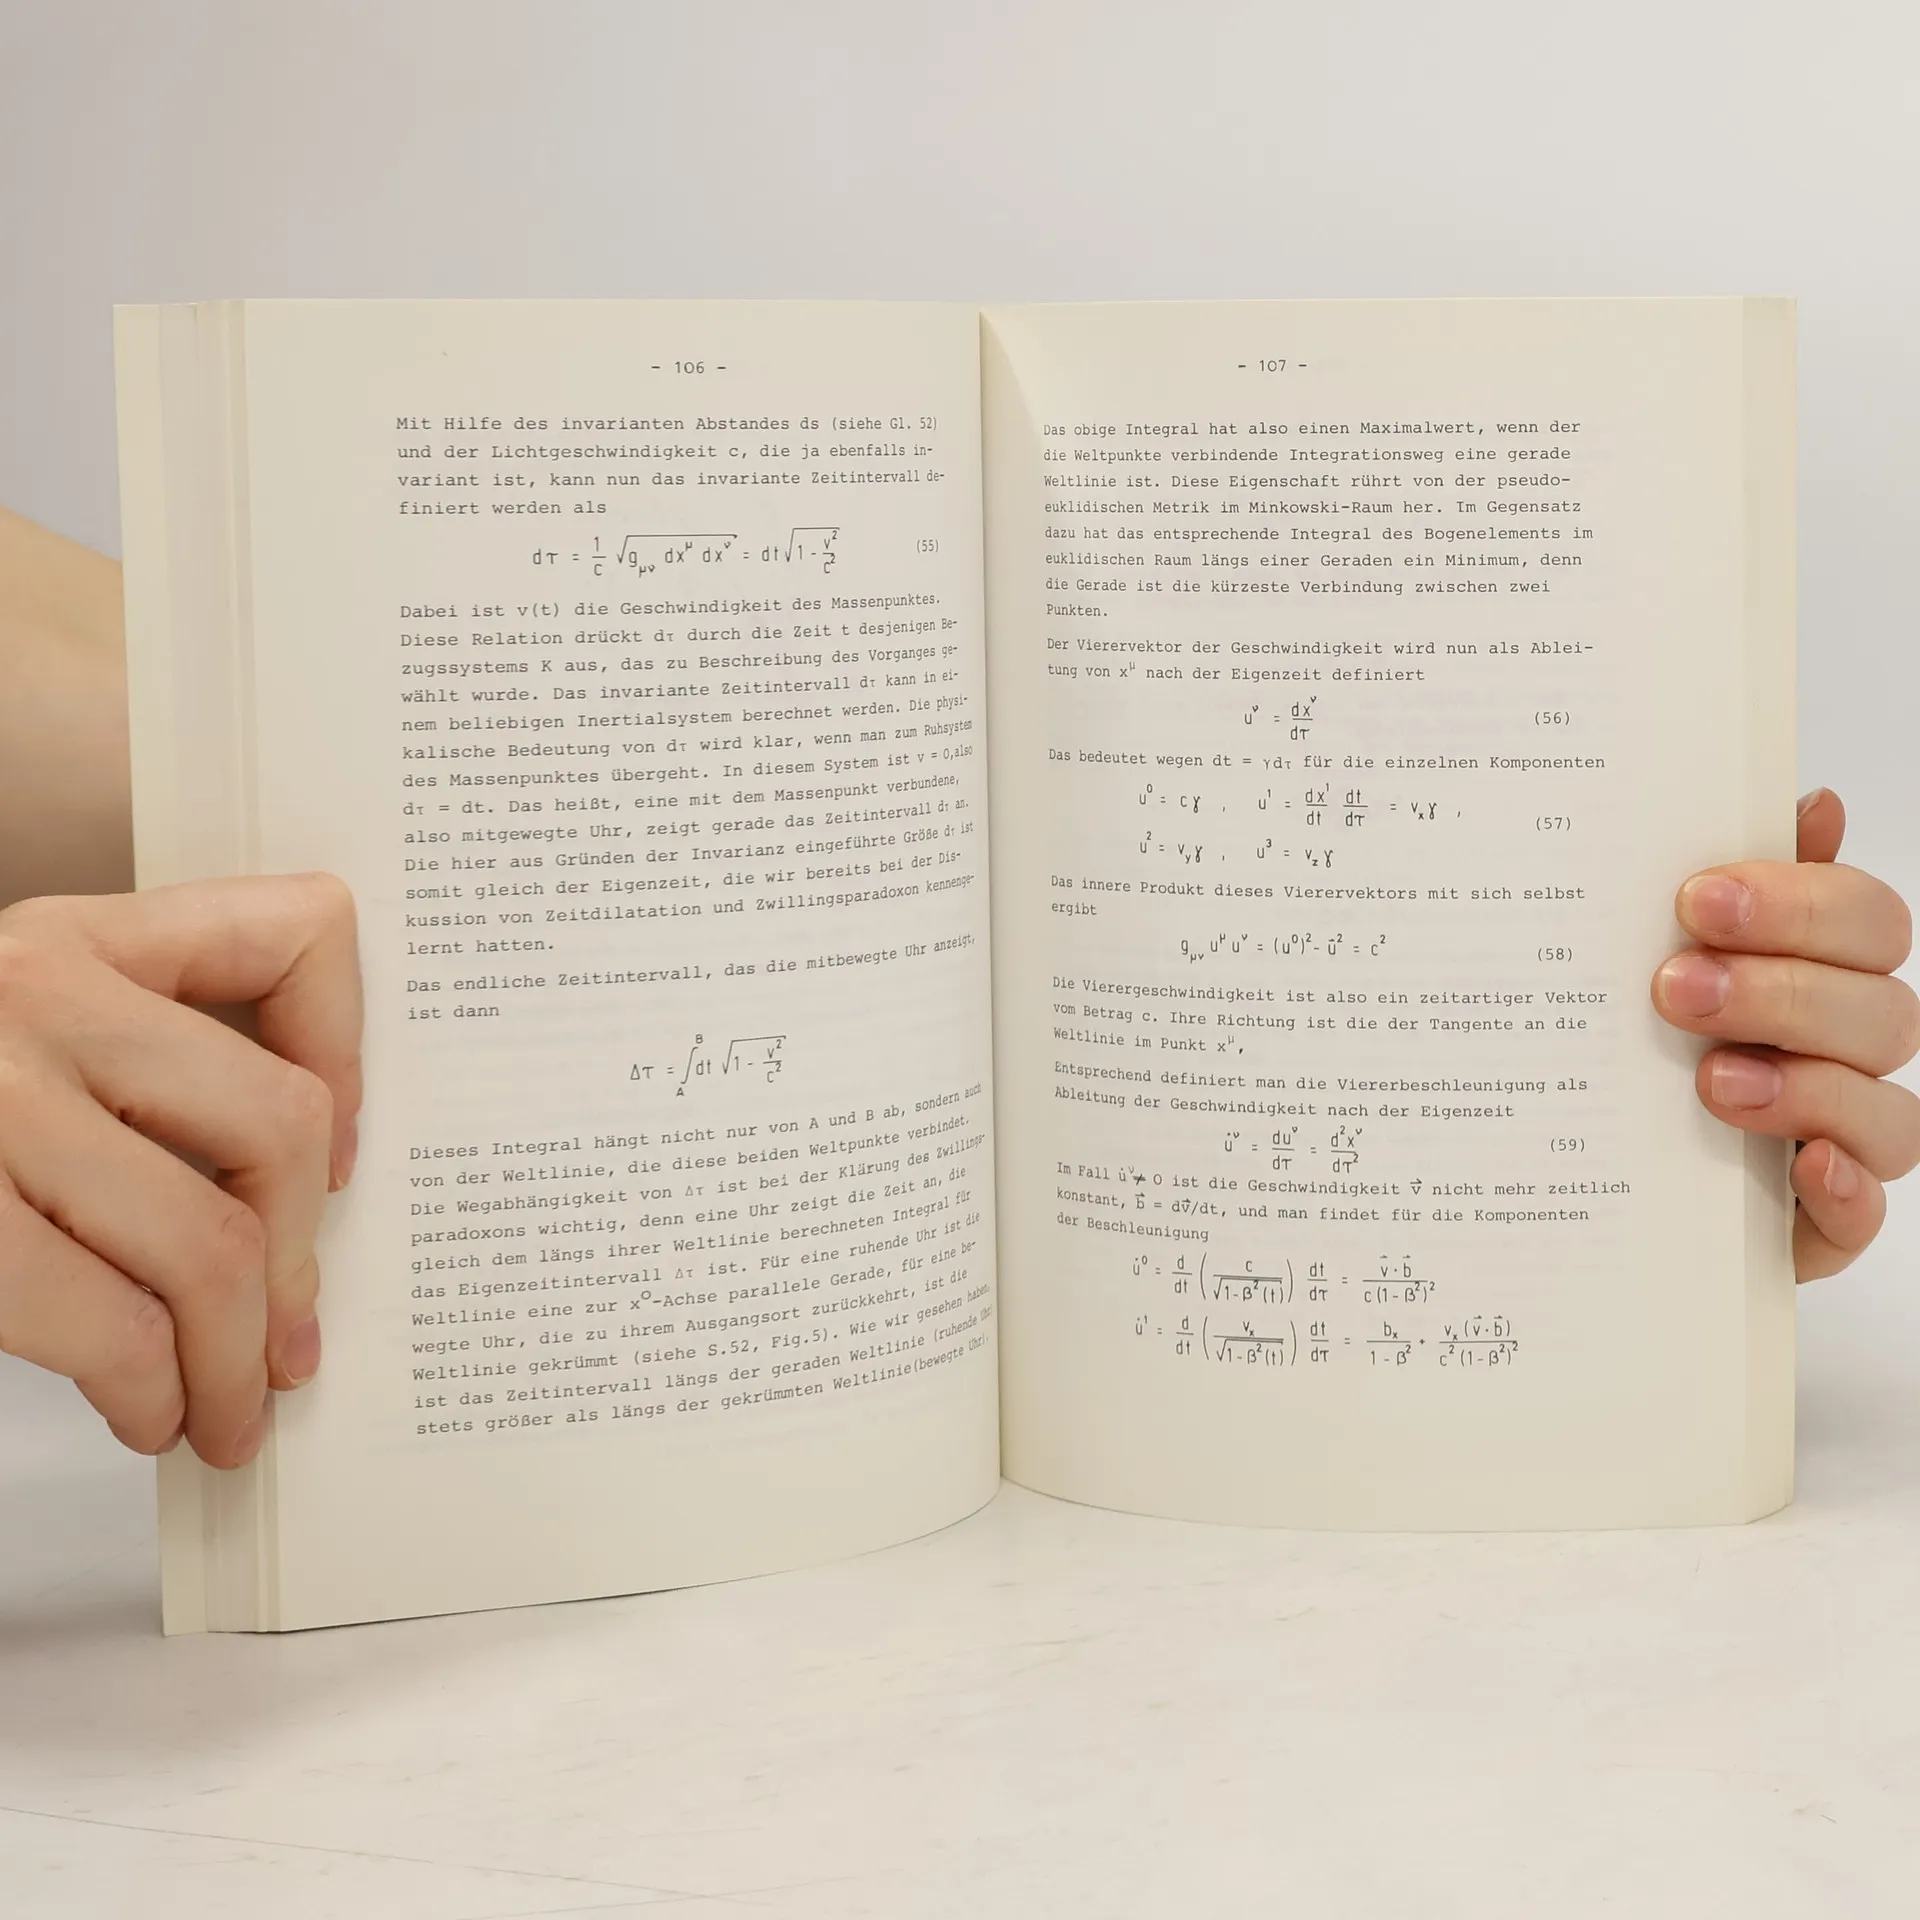 - 106 -
Mit Hilfe des invarianten Abstandes ds (siehe Gl. 52)
und der Lichtgeschwindigkeit c, die ja ebenfalls in-
variant ist, kann nun das invariante Zeitintervall de-
finiert werden als
dτ = 1/c √(g_μν dx^μ dx^ν) = dt √(1 - v²/c²) (55)
Dabei ist v(t) die Geschwindigkeit des Massenpunktes.
Diese Relation drückt dτ durch die Zeit t desjenigen Be-
zugssystems K aus, das zu Beschreibung des Vorganges ge-
wählt wurde. Das invariante Zeitintervall dτ kann in ei-
nem beliebigen Inertialsystem berechnet werden. Die physi-
kalische Bedeutung von dτ wird klar, wenn man zum Ruhsystem
des Massenpunktes übergeht. In diesem System ist v = 0,also
dτ = dt. Das heißt, eine mit dem Massenpunkt verbundene,
also mitgewegte Uhr, zeigt gerade das Zeitintervall dτ an.
Die hier aus Gründen der Invarianz eingeführte Größe dτ ist
somit gleich der Eigenzeit, die wir bereits bei der Dis-
kussion von Zeitdilatation und Zwillingsparadoxon kennenge-
lernt hatten.
Das endliche Zeitintervall, das die mitbewegte Uhr anzeigt,
ist dann
Δτ = ∫_A^B dt √(1 - v²/c²)
Dieses Integral hängt nicht nur von A und B ab, sondern auch
von der Weltlinie, die diese beiden Weltpunkte verbindet.
Die Wegabhängigkeit von Δτ ist bei der Klärung des Zwillings-
paradoxons wichtig, denn eine Uhr zeigt die Zeit an, die
gleich dem längs ihrer Weltlinie berechneten Integral für
das Eigenzeitintervall Δτ ist. Für eine ruhende Uhr ist die
Weltlinie eine zur x⁰-Achse parallele Gerade, für eine be-
wegte Uhr, die zu ihrem Ausgangsort zurückkehrt, ist die
Weltlinie gekrümmt (siehe S.52, Fig.5). Wie wir gesehen haben,
ist das Zeitintervall längs der geraden Weltlinie (ruhende Uhr)
stets größer als längs der gekrümmten Weltlinie(bewegte Uhr).
- 107 -
Das obige Integral hat also einen Maximalwert, wenn der
die Weltpunkte verbindende Integrationsweg eine gerade
Weltlinie ist. Diese Eigenschaft rührt von der pseudo-
euklidischen Metrik im Minkowski-Raum her. Im Gegensatz
dazu hat das entsprechende Integral des Bogenelements im
euklidischen Raum längs einer Geraden ein Minimum, denn
die Gerade ist die kürzeste Verbindung zwischen zwei
Punkten.
Der Vierervektor der Geschwindigkeit wird nun als Ablei-
tung von x^μ nach der Eigenzeit definiert
u^ν = dx^ν/dτ (56)
Das bedeutet wegen dt = γdτ für die einzelnen Komponenten
u⁰ = cγ , u¹ = dx¹/dt dt/dτ = v_xγ ,
(57)
u² = v_yγ , u³ = v_zγ
Das innere Produkt dieses Vierervektors mit sich selbst
ergibt
g_μν u^μ u^ν = (u⁰)² - u⃗² = c² (58)
Die Vierergeschwindigkeit ist also ein zeitartiger Vektor
vom Betrag c. Ihre Richtung ist die der Tangente an die
Weltlinie im Punkt x^μ,
Entsprechend definiert man die Viererbeschleunigung als
Ableitung der Geschwindigkeit nach der Eigenzeit
u̇^ν = du^ν/dτ = d²x^ν/dτ² (59)
Im Fall u̇^ν ≠ 0 ist die Geschwindigkeit v⃗ nicht mehr zeitlich
konstant, b⃗ = dv⃗/dt, und man findet für die Komponenten
der Beschleunigung
u̇⁰ = d/dt (c/√(1-β²(t))) dt/dτ = v⃗·b⃗/c(1-β²)²
u̇¹ = d/dt (v_x/√(1-β²(t))) dt/dτ = b_x/(1-β²) + v_x(v⃗·b⃗)/c²(1-β²)²